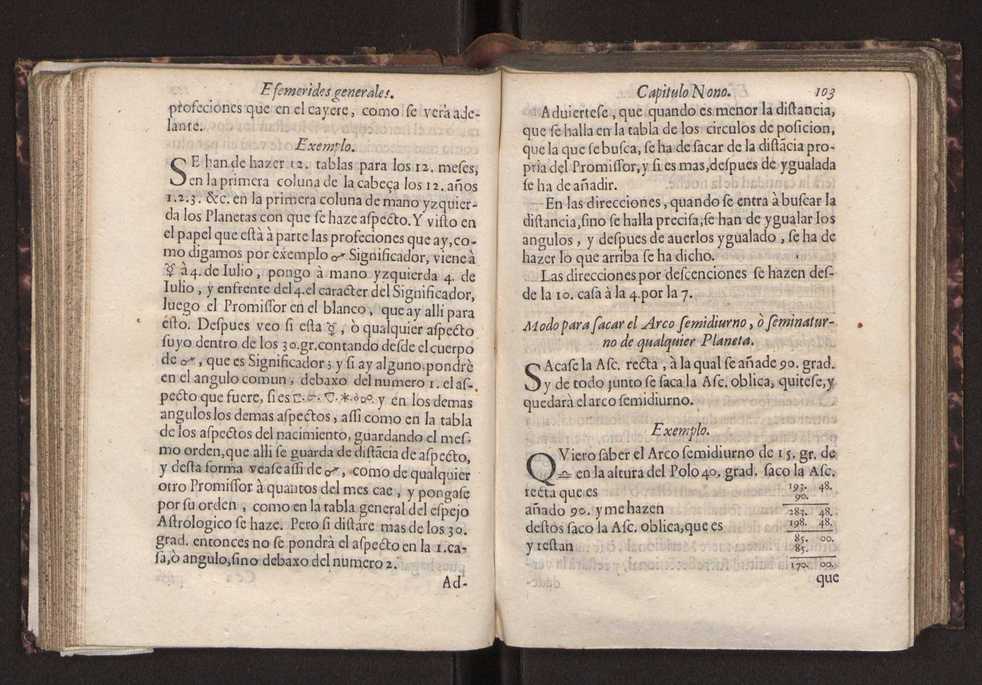 Efemerides generales.
profeciones que en el cayere, como se verà ade-
lante.
Exemplo.
SE han de hazer 12. tablas para los 12. meses,
en la primera coluna de la cabeça los 12. años
1.2.3. &c. en la primera coluna de mano yzquier-
da los Planetas con que se haze aspecto. Y visto en
el papel que està à parte las profeciones que ay, co-
mo digamos por exemplo ♂ Significador, viene à
☿ à 4. de Iulio, pongo à mano yzquierda 4. de
Iulio, y enfrente del 4. el caracter del Significador,
luego el Promissor en el blanco, que ay alli para
esto. Despues veo si esta ☿, ò qualquier aspecto
suyo dentro de los 30. gr. contando desde el cuerpo
de ♂, que es Significador; y si ay alguno, pondrè
en el angulo comun, debaxo del numero 1. el as-
pecto que fuere, si es □. ☍. ▽. ✶. ò ☍. y en los demas
angulos los demas aspectos, assi como en la tabla
de los aspectos del nacimiento, guardando el mes-
mo orden, que alli se guarda de distãcia de aspecto,
y desta forma vease assi de ♂, como de qualquier
otro Promissor à quantos del mes cae, y pongase
por su orden, como en la tabla general del espejo
Astrologico se haze. Pero si distare mas de los 30.
grad. entonces no se pondrà el aspecto en la 1. ca-
sa, ò angulo, sino debaxo del numero 2.
Ad-
Capitulo Nono. 103
Aduiertese, que quando es menor la distancia,
que se halla en la tabla de los circulos de posicion,
que la que se busca, se ha de sacar de la distãcia pro-
pria del Promissor, y si es mas, despues de ygualada
se ha de añadir.
En las direcciones, quando se entra à buscar la
distancia, sino se halla precisa, se han de ygualar los
angulos, y despues de auerlos ygualado, se ha de
hazer lo que arriba se ha dicho.
Las direcciones por descenciones se hazen des-
de la 10. casa à la 4. por la 7.
Modo para sacar el Arco semidiurno, ò seminatur-
no de qualquier Planeta.
SAcase la Asc. recta, à la qual se añade 90. grad.
y de todo junto se saca la Asc. oblica, quitese, y
quedarà el arco semidiurno.
Exemplo.
QViero saber el Arco semidiurno de 15. gr. de
♎ en la altura del Polo 40. grad. saco la Asc.
recta que es 193. 48.
90.
añado 90. y me hazen 283. 48.
destos saco la Asc. oblica, que es 198. 48.
y restan 85. 00.
85.
170. 00.
que